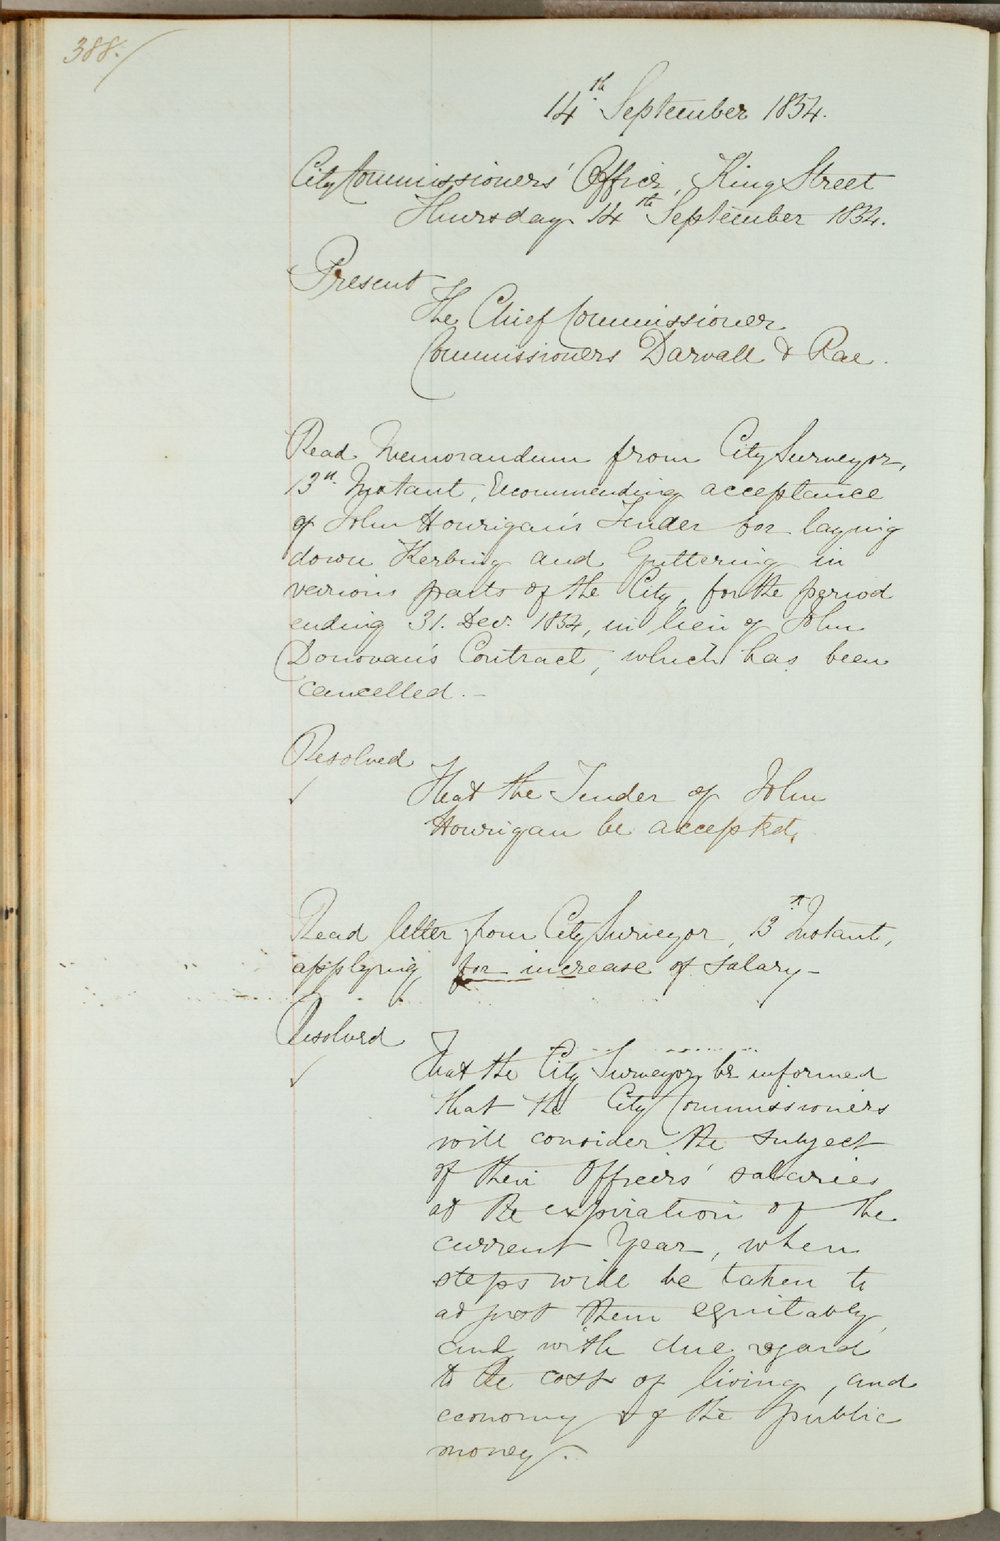 388.
14th September 1854.
City Commissioners' Office, King Street
Thursday 14th September 1854.
Present
The Chief Commissioner
Commissioners Darvall & Rae.
Read Memorandum from City Surveyor,
13th Instant, recommending acceptance
of John Hourigan's Tender for laying
down Kerbing and Guttering in
various parts of the City, for the period
ending 31. Dec. 1854, in lieu of John
Donovan's Contract, which has been
cancelled.-
Resolved
That the Tender of John
Hourigan be accepted.
Read letter from City Surveyor, 13th Instant,
applying for increase of salary-
Resolved
That the City Surveyor be informed
that the City Commissioners
will consider the subject
of their Officers' salaries
at the expiration of the
current Year, when
steps will be taken to
adjust them equitably,
and with due regard
to the cost of living, and
economy of the public
money.